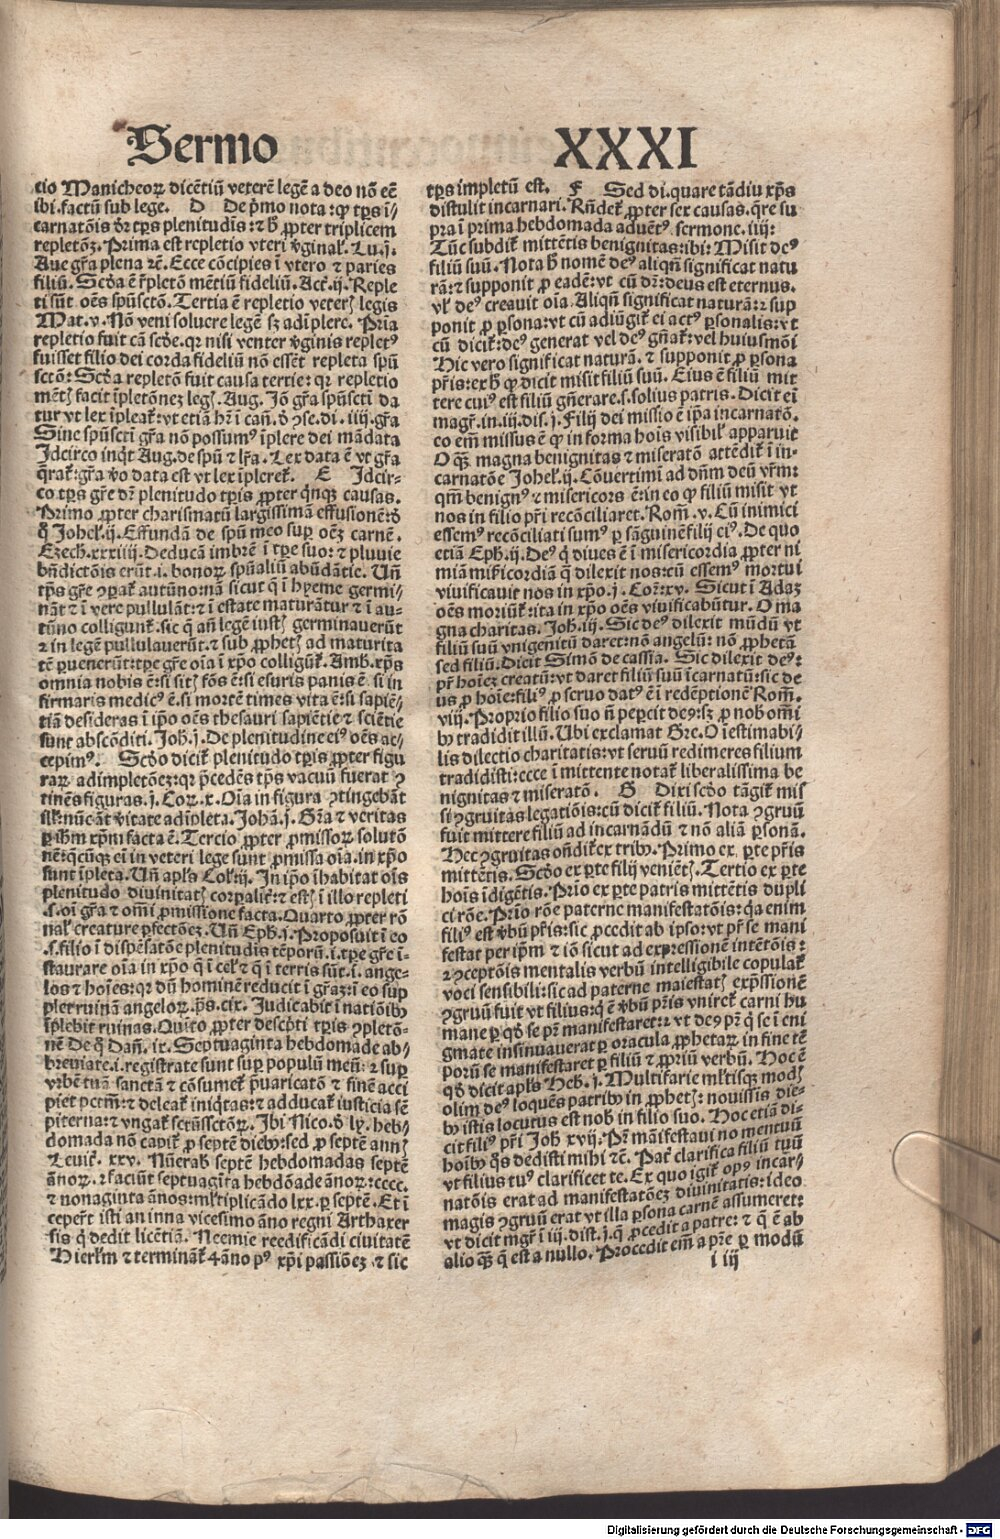 Sermo XXXI
tio Manicheoꝝ dicẽtiũ veterẽ legẽ a deo nõ eẽ
ibi. factũ sub lege. D De p̃mo nota: ꝙ tp̃s ĩ
carnatõis dr̃ tp̃s plenitudĩs: ⁊ h̃ ꝓpter triplicem
repletõꝫ. Prima est repletio vteri v̓ginaƚ. Lu. j.
Aue gr̃a plena ⁊c̃. Ecce cõcipies ĩ vtero ⁊ paries
filiũ. Scd̓a ẽ r̃pletõ mẽtiũ fideliũ. Act̃. ij. Reple
ti sũt oẽs spũsctõ. Tertia ẽ repletio veterꝭ legis
Mat. v. Nõ veni soluere legẽ sꝫ adĩplere. Pria
repletio fuit cã scd̓e. qꝛ nisi venter v̓ginis replet⁹
fuisset filio dei corda fideliũ nõ essẽt repleta spũ
sctõ: Scd̓a repletõ fuit causa tertie: qꝛ repletio
mẽtꝭ facit ĩpletõneꝫ legꝭ. Aug. Jõ gr̃a spũscti da
tur vt lex ĩpleat̃: vt etiã hr̃ ĩ cañ. d̓ ꝯse. di. iiij. gr̃a
Sine spũscti gr̃a nõ possum⁹ ĩplere dei mãdata
Jdcirco inqt̃ Aug. de spũ ⁊ lr̃a. Lex data ẽ vt gr̃a
q̃rat̃: gr̃a v̓o data est vt lex ĩpleret̃. E Jdcir-
co tp̃s gr̃e dr̃ plenitudo tp̃is ꝓpter q̃nqꝫ causas.
Primo ꝓpter charismatũ largissimã effusionẽ: d̓
q̃ Johel. ij. Effundã de spũ meo suꝑ oẽꝫ carnẽ.
Ezech. xxxiiij. Deducã imbrẽ ĩ tp̃e suo: ⁊ pluuie
bñdictõis erũt. i. bonoꝝ spũaliũ abũdãtie. Uñ
tp̃s gr̃e ꝯꝑat̃ autũno: nã sicut q̃ ĩ hyeme germi-
nãt ⁊ ĩ vere pullulãt: ⁊ ĩ estate maturãtur ⁊ ĩ au-
tũno colligunt̃. sic q̃ añ legẽ iustꝭ germinauerũt
⁊ in legẽ pullulauerũt. ⁊ sub ꝓphetꝭ ad maturita
tẽ ꝑuenerũt: tp̃e gr̃e oĩa ĩ xp̃o colligũt̃. Amb. xp̃s
omnia nobis ẽ: si sitꝭ fõs ẽ: si esuris panis ẽ. si in
firmaris medic⁹ ẽ. si mortẽ times vita ẽ: si sapiẽ-
tiã desideras ĩ ip̃o oẽs thesauri sapiẽtie ⁊ sciẽtie
sunt abscõditi. Joh. j. De plenitudine ei⁹ oẽs ac-
cepim⁹. Scd̓o dicit̃ plenitudo tp̃is ꝓpter figu
raꝝ adimpletõeꝫ: qꝛ p̃cedẽs tp̃s vacuũ fuerat ꝯ
tinẽs figuras. j. Coꝝ. x. Oĩa in figura ꝯtingebãt
nũc añt v̓itate adĩpleta. Johã. j. Gr̃a ⁊ veritas
ꝑ ihm̃ xp̃m facta ẽ. Tercio ꝓpter ꝓmissoꝝ solutõ
nẽ: q̃cũqꝫ ei in veteri lege sunt ꝓmissa oĩa. in xp̃o
sunt ĩpleta. Uñ apl̃s Col. ij. In ip̃o ĩhabitat oĩs
plenitudo diuinitatꝭ corꝑalit̃: ⁊ estꝭ ĩ illo repleti
.s. oĩ gr̃a ⁊ omĩ ꝓmissione facta. Quarto ꝓpter rõ
naƚ creature ꝑfectõeꝫ. Uñ Eph. j. Proposuit ĩ eo
.s. filio ĩ dispẽsatõe plenitudis tẽporũ. i. tp̃e gr̃e ĩ-
staurare oĩa in xp̃o q̃ ĩ celꝭ ⁊ q̃ ĩ terris sũt. i. ange-
los ⁊ hoĩes: qꝛ dũ hominẽ reducit ĩ gr̃aꝫ: ĩ eo sup
plet ruinã angeloꝝ. p̃s. cix. Judicabit ĩ natiõibꝰ
ĩplebit ruinas. Quĩto ꝓpter descp̃ti tp̃is ꝯpletõ-
nẽ De q̃ Dañ. ix. Septuaginta hebdomade ab-
breuiate. i. registrate sunt suꝑ populũ meũ: ⁊ suꝑ
vrbẽ tuã sanctã ⁊ cõsumet̃ p̃uaricatõ ⁊ finẽ acci
piet pctm̃: ⁊ deleat̃ iniq̃tas: ⁊ adducat̃ iusticia sẽ
piterna: ⁊ vngat̃ sctũssctõꝝ. Jbi Nico. d̓ ly. heb-
domada nõ capit̃ ꝓ septẽ diebꝰ: sed ꝓ septẽ annꝭ
Leuit̃. xxv. Nũerabꝭ septẽ hebdomadas septẽ
ãnoꝝ. ⁊ faciũt septuagĩta hebdõade ãnoꝝ: cccc.
⁊ nonaginta ãnos: ml̃tiplicãdo lxx. ꝑ septẽ. Et ĩ
ceper̃t isti an inna vicesimo ãno regni Arthaxer
sis q̃ dedit licẽtiã. Neemie reedificãdi ciuitatẽ
Hierlm̃ ⁊ terminãt̃ 4 ano p⁹ xp̃i passiõeꝫ ⁊ sic
tp̃s impletũ est. F Sed di. quare tãdiu xp̃s
distulit incarnari. Rñdet̃ ꝓpter sex causas. q̃re su
pra ĩ prima hebdomada aduẽt⁹. sermone. iiij:
Tũc subdit̃ mittẽtis benignitas: ibi: Misit de⁹
filiũ suũ. Nota h̃ nomẽ de⁹ aliqñ significat natu
rã: ⁊ supponit ꝓ eadẽ: vt cũ dr̃: deus est eternus.
vƚ de⁹ creauit oĩa. Aliqñ significat naturã: ⁊ sup
ponit ꝓ ꝑsona: vt cũ adiũgit̃ ei act⁹ ꝑsonalis: vt
cũ dicit̃: de⁹ generat vel de⁹ gñat̃: vel huiusmõi
Hic vero significat naturã. ⁊ supponit ꝓ ꝑsona
pr̃is: ex h̃ ꝙ dicit misit filiũ suũ. Eius ẽ filiũ mit
tere cui⁹ est filiũ gñerare. s. solius patris. Dicit eĩ
magr̃. in. iij. dis. j. Filij dei missio ẽ ip̃a incarnatõ.
co em̃ missus ẽ ꝙ in forma hoĩs visibilꝭ apparuit
O qꝫ magna benignitas ⁊ miseratõ attẽdit̃ ĩ in-
carnatõe Johel. ij. Cõuertimĩ ad dñm deũ vr̃m:
qm̃ benign⁹ ⁊ misericors ẽ: in eo ꝙ filiũ misit vt
nos in filio pr̃i recõciliaret. Rom̃. v. Cũ inimici
essem⁹ recõciliati sum⁹ ꝑ sãguinẽ filij ei⁹. De quo
etiã Eph. ij. De⁹ q̃ diues ẽ ĩ misericordia ꝓpter ni
miã mir̃icordiã q̃ dilexit nos: cũ essem⁹ mortui
viuificauit nos in xp̃o. j. Cor̃. xv. Sicut ĩ Adaꝫ
oẽs moriũt̃: ita in xp̃o oẽs viuificabũtur. O ma
gna charitas. Joh. iij. Sic de⁹ dilexit mũdũ vt
filiũ suũ vnigenitũ daret: nõ angelũ: nõ ꝓphetã
sed filiũ. Dicit Simõ de cassia. Sic dilexit de⁹:
pr̃ hoĩeꝫ creatũ: vt daret filiũ suũ ĩcarnatũ: sic de
us ꝓ hoĩe: fili⁹ ꝓ seruo dat⁹ ẽ ĩ redẽptionẽ Rom̃.
viij. Proprio filio suo ñ peꝑcit de⁹: sꝫ ꝓ nobꝭ om̃i
bꝰ tradidit illũ. Ubi exclamat Gre. O ĩestimabi-
lis dilectio charitatis: vt seruũ redimeres filium
tradidisti: ecce ĩ mittente notat̃ liberalissima be
nignitas ⁊ miseratõ. G Dixi scd̓o tãgit̃ mis
si ꝯgruitas legatiõis: cũ dicit̃ filiũ. Nota ꝯgruũ
fuit mittere filiũ ad incarnãdũ ⁊ nõ aliã ꝑsonã.
Hec ꝯgruitas oñdit̃ ex tribꝰ. Primo ex ꝑte pr̃is
mittẽtis. Scd̓o ex ꝑte filij veniẽtꝭ. Tertio ex ꝑte
hoĩs ĩdigẽtis. Prio ex ꝑte patris mittẽtis dupli
ci rõe. Prio rõe paterne manifestatõis: q̃a enim
fili⁹ est v̓bũ pr̃is: sic ꝓcedit ab ipso: vt pr̃ se mani
festat per ip̃m ⁊ iõ sicut ad expressionẽ intẽtõis:
⁊ ꝯceptõis mentalis verbũ intelligibile copulat̃
voci sensibili: sic ad paterne maiestatꝭ exp̃ssionẽ
ꝯgruũ fuit vt filius: q̃ ẽ v̓bũ pr̃is vniret̃ carni hu
mane ꝑ qd̓ se pr̃ manifestaret: ⁊ vt de⁹ pr̃ q̃ se ĩ eni
gmate insinuauerat ꝑ oracula ꝓphetaꝝ in fine tẽ
porũ se manifestaret ꝑ filiũ ⁊ ꝓpriũ verbũ. Hoc ẽ
qd̓ dicit apl̃s Heb. j. Multifarie ml̃tisqꝫ modꝭ
olim de⁹ loquẽs patribꝰ in ꝓphetꝭ: nouissis die-
bꝰ istis locutus est nobꝭ in filio suo. Hoc etiã di-
cit fili⁹ pr̃i Joh xvij. Pr̃ mãifestaui nomen tuũ
hoĩbꝰ q̃s dedisti mihi ⁊c̃. Pat̃ clarifica filiũ tuũ
vt filius tu⁹ clarificet te. Ex quo igit̃ op⁹ incar-
natõis erat ad manifestatõeꝫ diuinitatis: ideo
magis ꝯgruũ erat vt illa ꝑsona carnẽ assumeret:
vt dicit mgr̃ ĩ iij. dist. j. q̃ ꝓcedit a patre: ⁊ q̃ ẽ ab
alio qꝫ q̃ est a nullo. Procedit em̃ a pr̃e ꝑ modũ
i iij
Digitalisierung gefördert durch die Deutsche Forschungsgemeinschaft - DFG